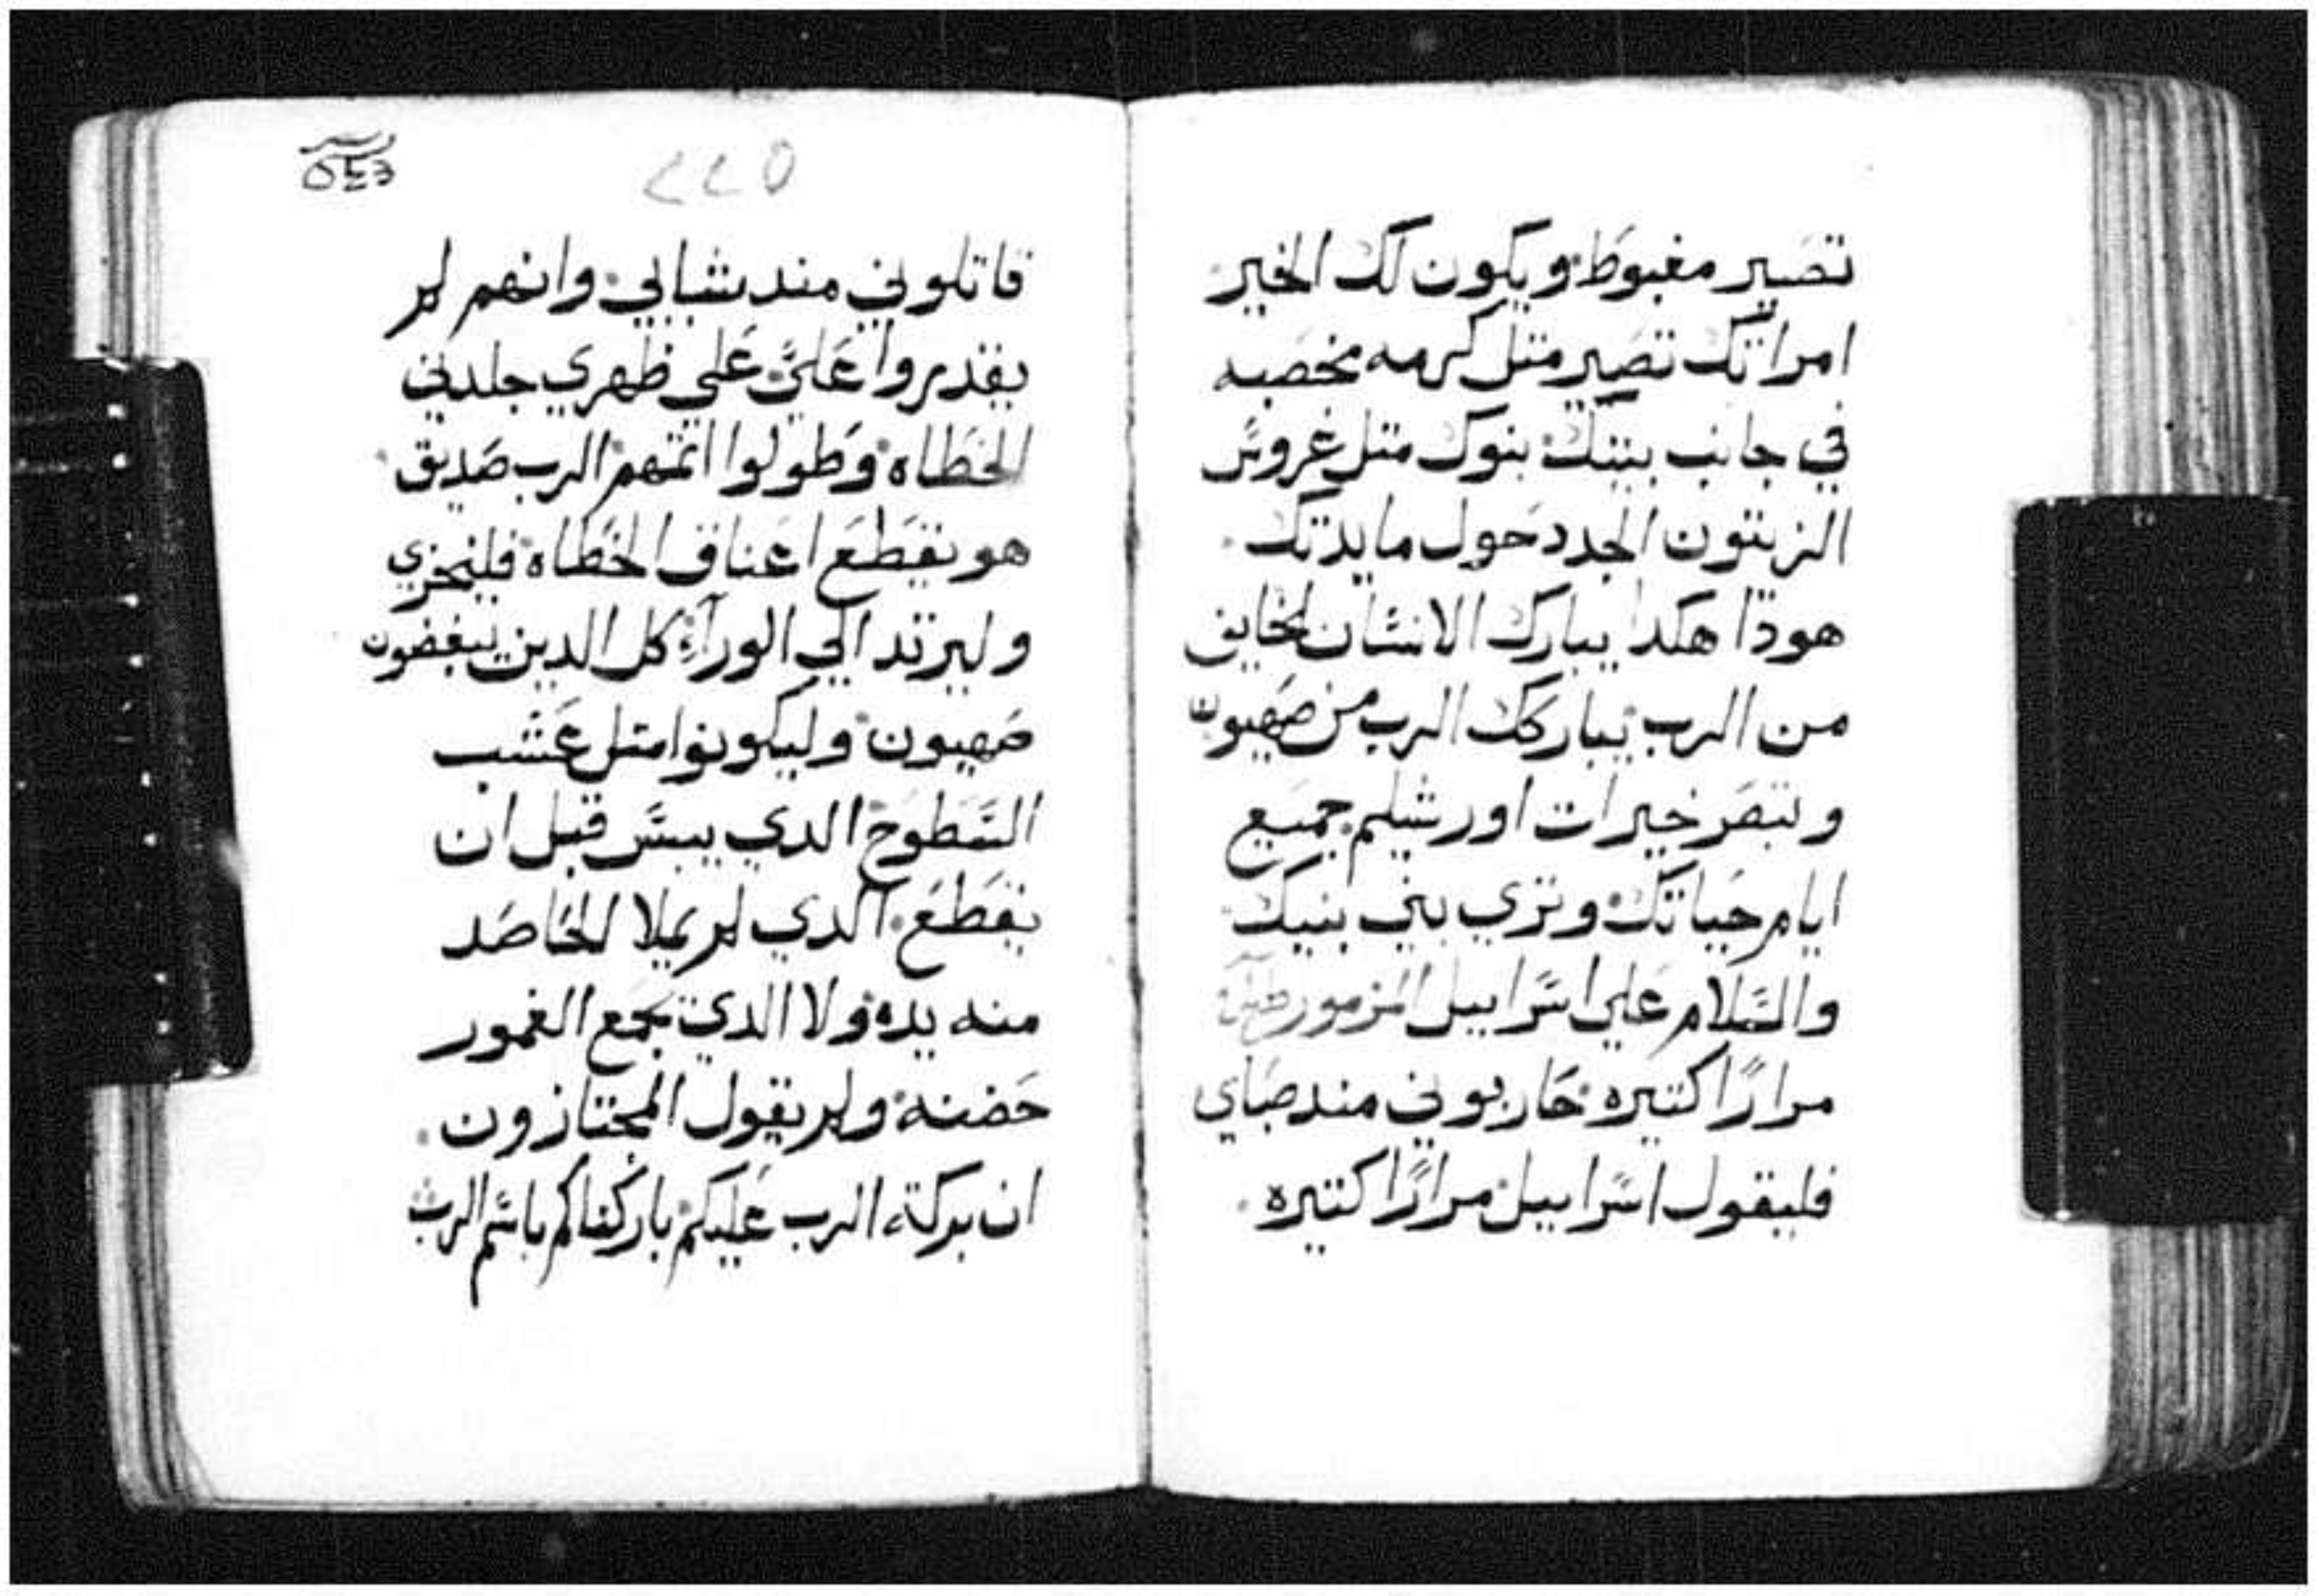 تصير مغبوط ويكون لك الخير
امراتك تصير متل كرمه مخصبه
في جانب بيتك بنوك متل غروس
الزيتون الجدد حول مايدتك
هودا هكدا يبارك الانسان الخايف
من الرب يباركك الرب من صهيون
وتبصر خيرات اورشليم جميع
ايام حياتك وتري بني بنيك
والسلام علي اسراييل المزمور
مرارًا كتيره حاربوني مند صباي
فليقول اسراييل مرارًا كتيره
٢٢٥
قاتلوني مند شبابي وانهم لم
يقدروا عليَّ علي ظهري جلدني
الخطاه وطولوا اتمهم الرب صديق
هو يقطع اعناق الخطاه فليخزي
وليرتد الي الورآء كل الدين يبغضون
صهيون وليكونوا متل عشب
السطوح الدي ييبس قبل ان
يقطع الدي لم يملا الحاصد
منه يده ولا الدي يجمع الغمور
حضنه ولم يقول المجتازون
ان بركة الرب عليكم باركناكم باسم الرب